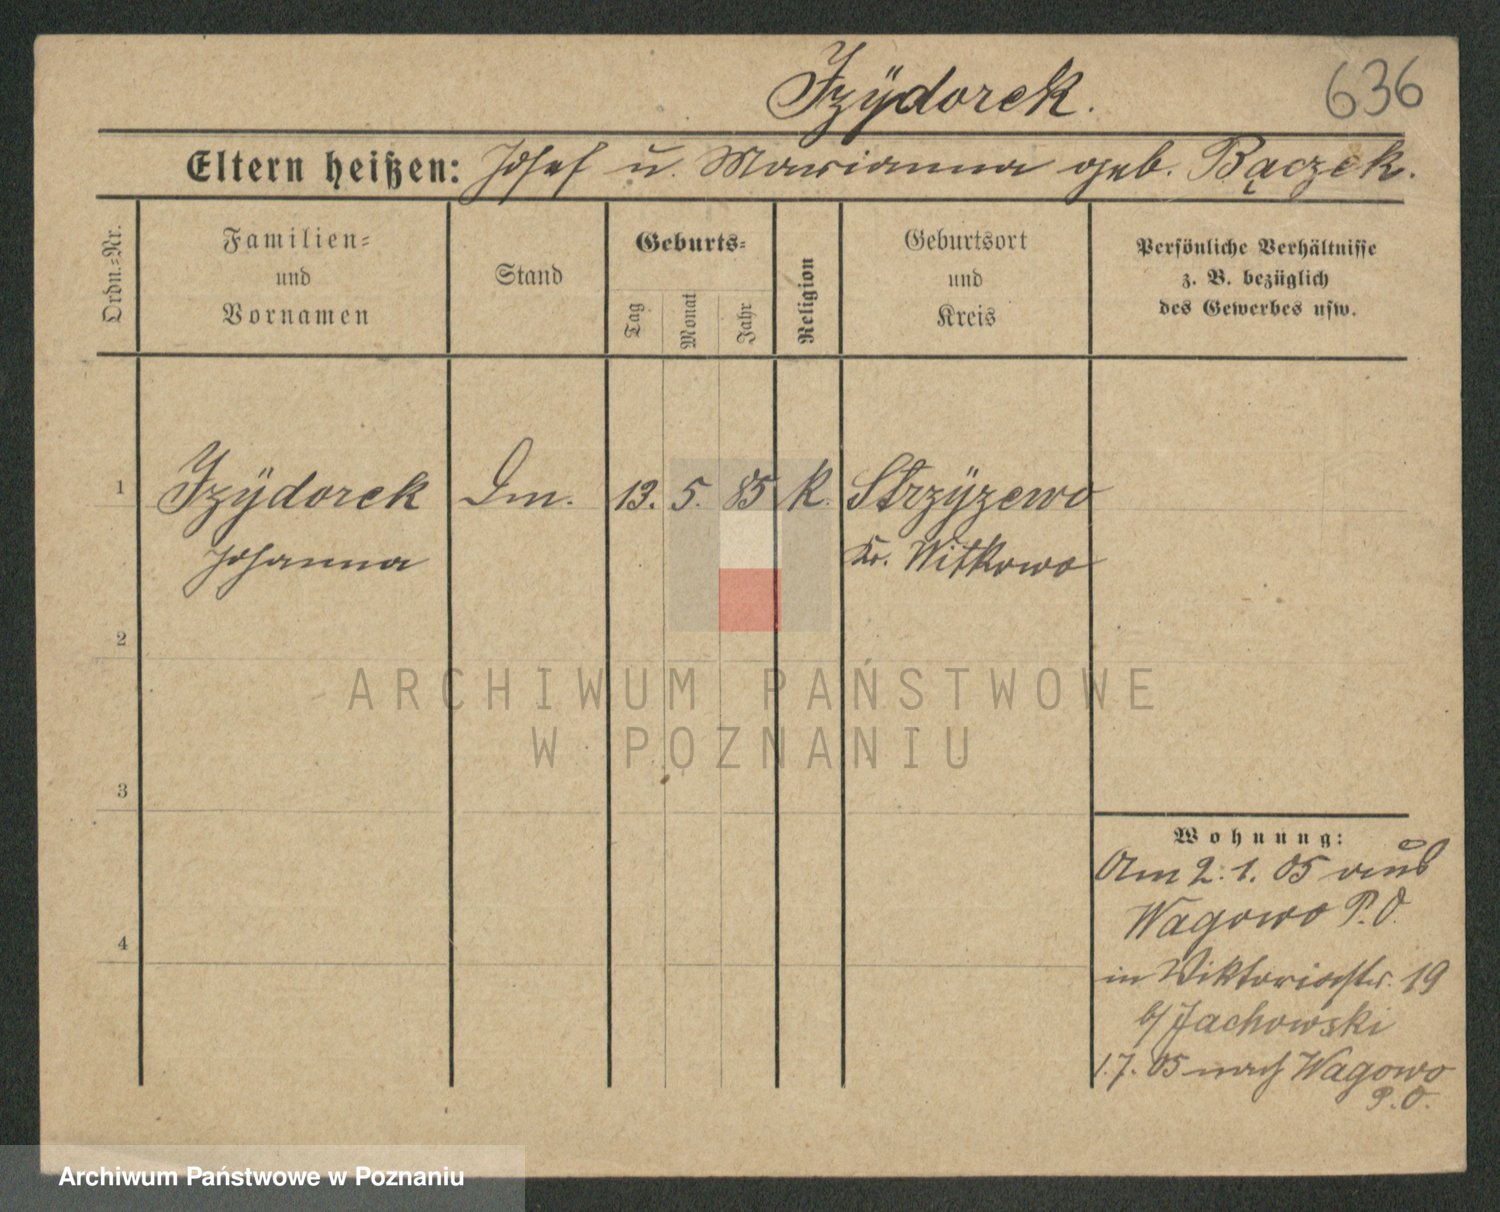 Izÿdorek.
636
Eltern heißen: Josef u. Marianna geb. Bączek.
Ordn.=Nr.
Familien=
und
Vornamen
Stand
Geburts=
Tag
Monat
Jahr
Religion
Geburtsort
und
Kreis
Persönliche Verhältnisse
z. B. bezüglich
des Gewerbes usw.
1 Izÿdorek Dm. 13. 5. 85 k. Strzÿzewo
Johanna Kr. Witkowo
2
ARCHIWUM PAŃSTWOWE
W POZNANIU
3
4
Wohnung:
Am 2.1.05 aus
Wagowo P.O.
in Viktoriastr. 19
b/ Jachowski
1.7.05 nach Wagowo
P.O.
Archiwum Państwowe w Poznaniu